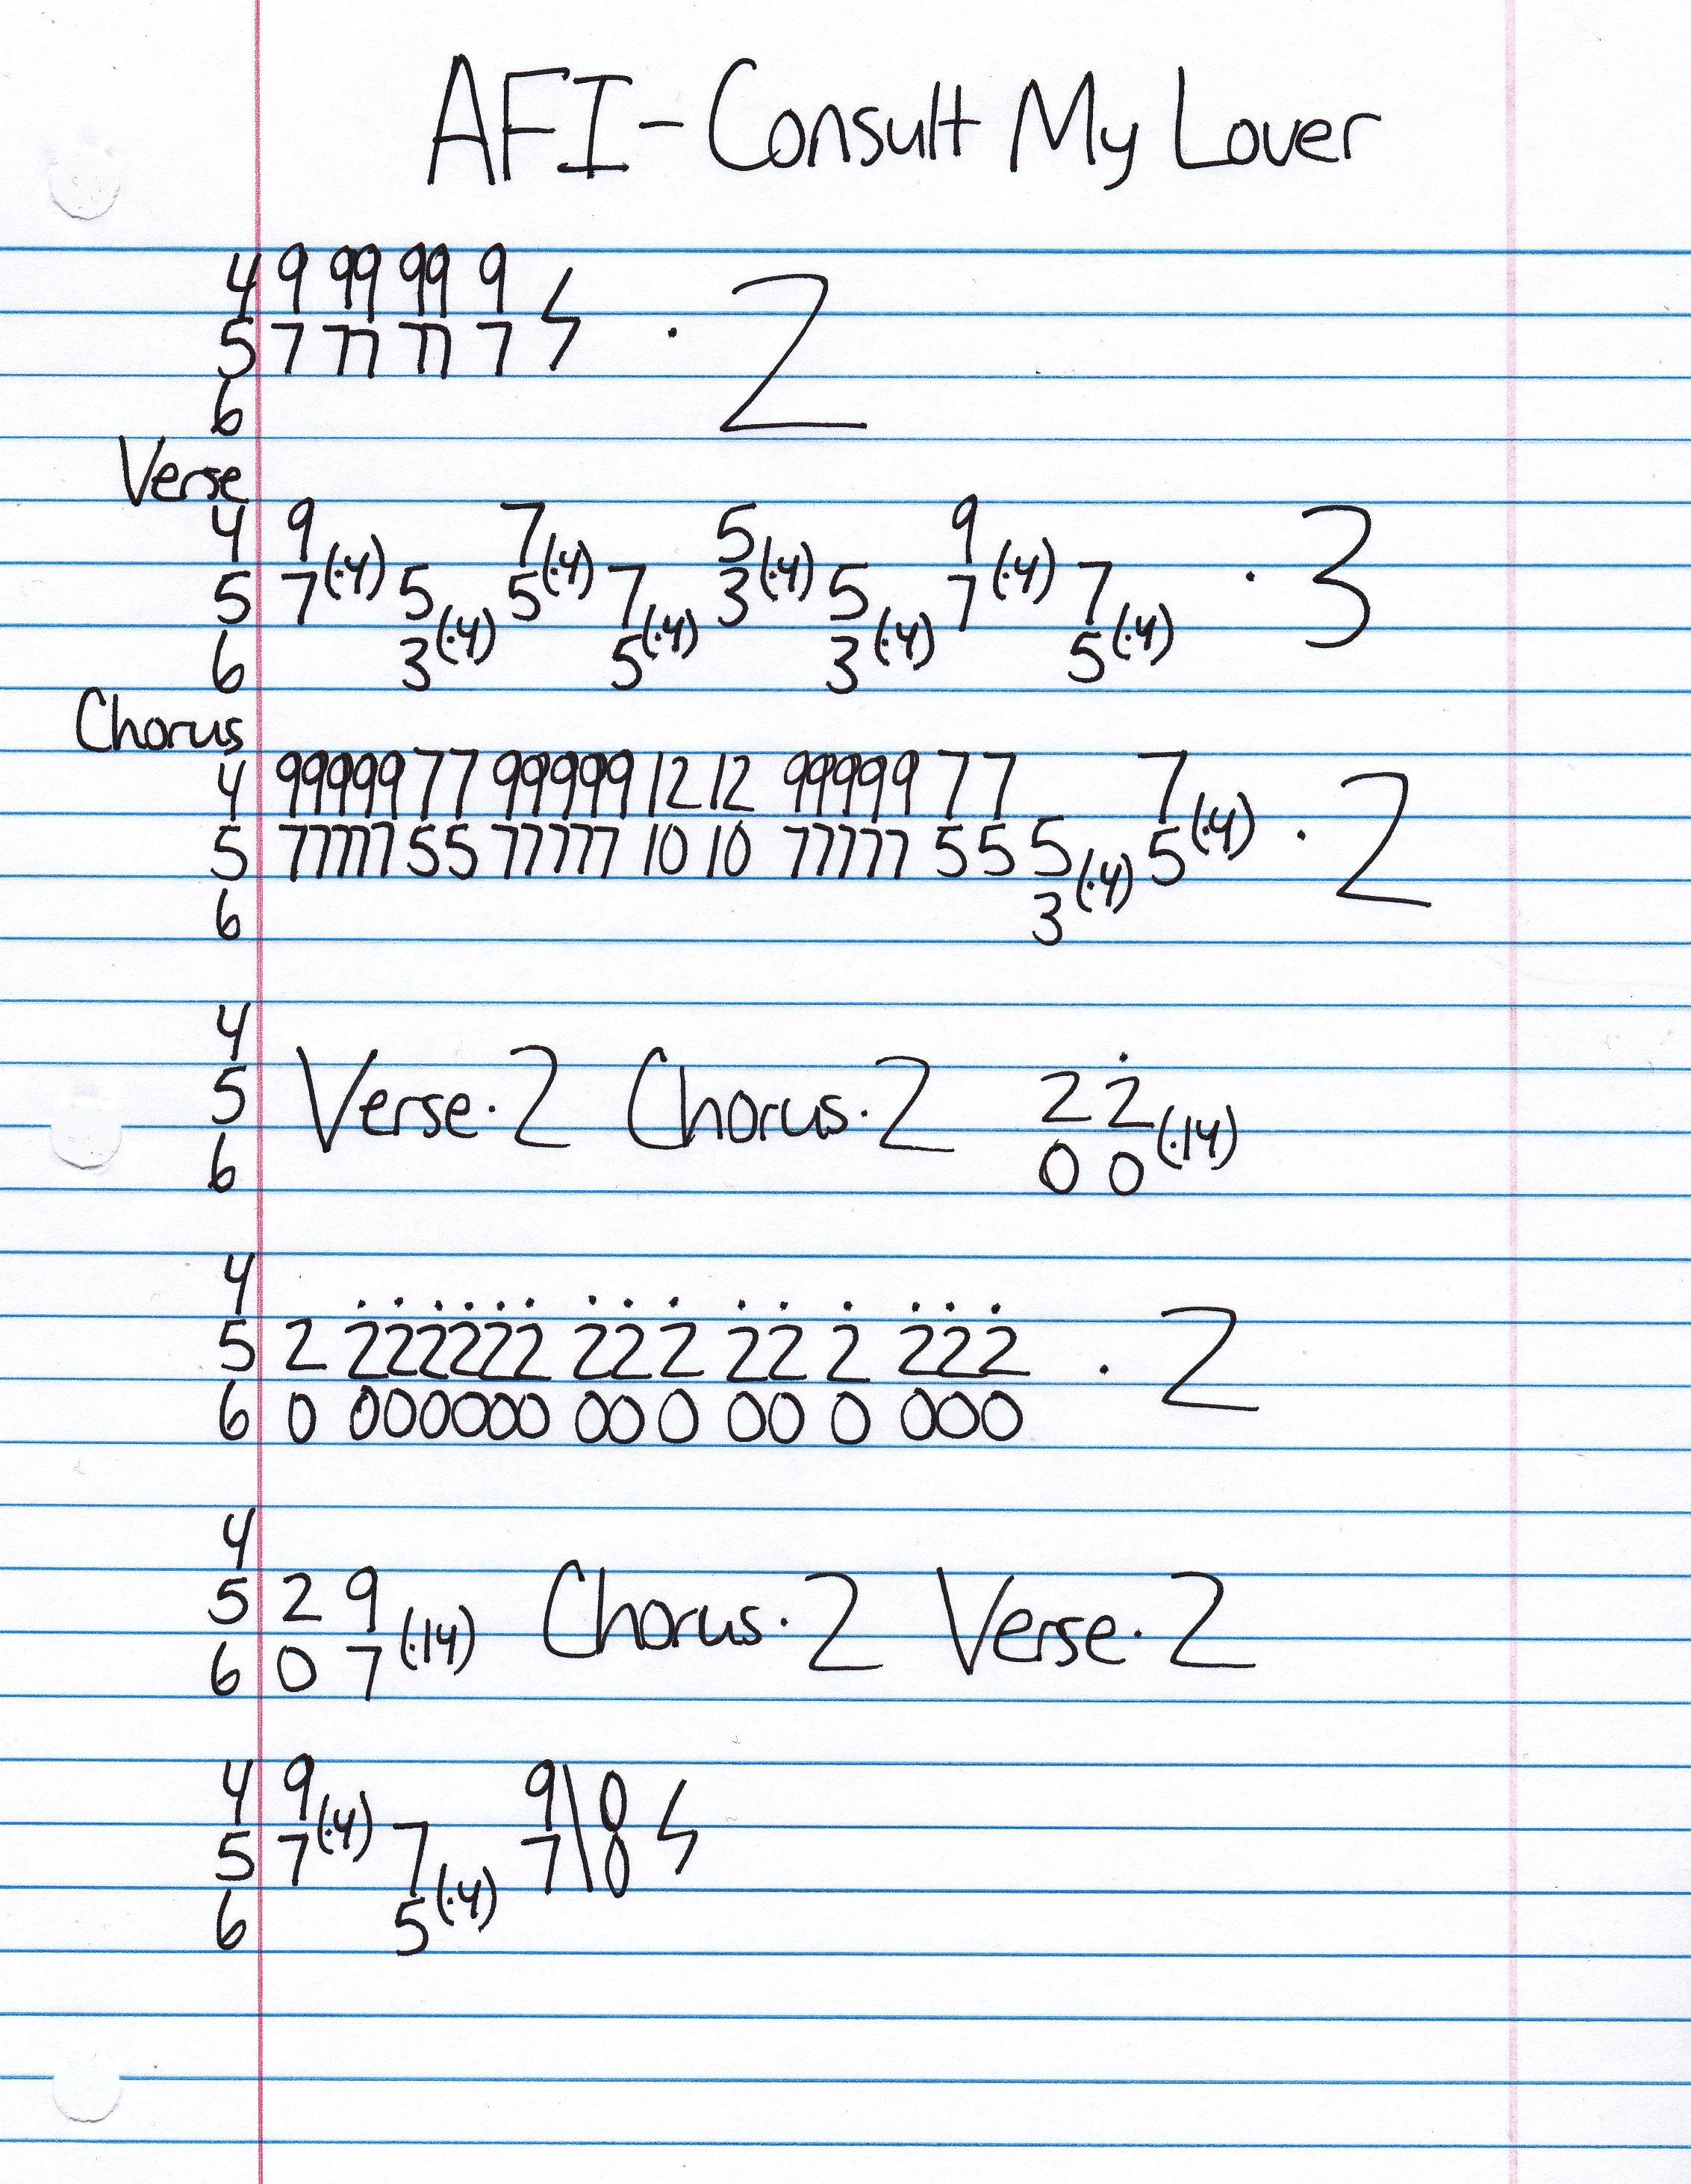 AFI - Consult My Lover
4 9 99 99 9
5 7 77 77 7 ϟ · 2
6
Verse
4 9 7 5 9
5 7(·4) 5 5(·4) 7 3(·4) 5 7(·4) 7 · 3
6 3(·4) 5(·4) 3(·4) 5(·4)
Chorus
4 99999 77 99999 12 12 99999 77 7
5 77777 55 77777 10 10 77777 55 5 5(·4) · 2
6 3(·4)
4
5 Verse·2 Chorus·2 2 2̇
6 0 0(·14)
4
5 2 2̇2̇2̇2̇2̇2̇ 2̇2̇2̇ 2̇2̇ 2̇ 2̇2̇2̇ · 2
6 0 000000 000 00 0 000
4
5 2 9 Chorus·2 Verse·2
6 0 7(·14)
4 9 9\0
5 7(·4) 7 7\0 ϟ
6 5(·4)